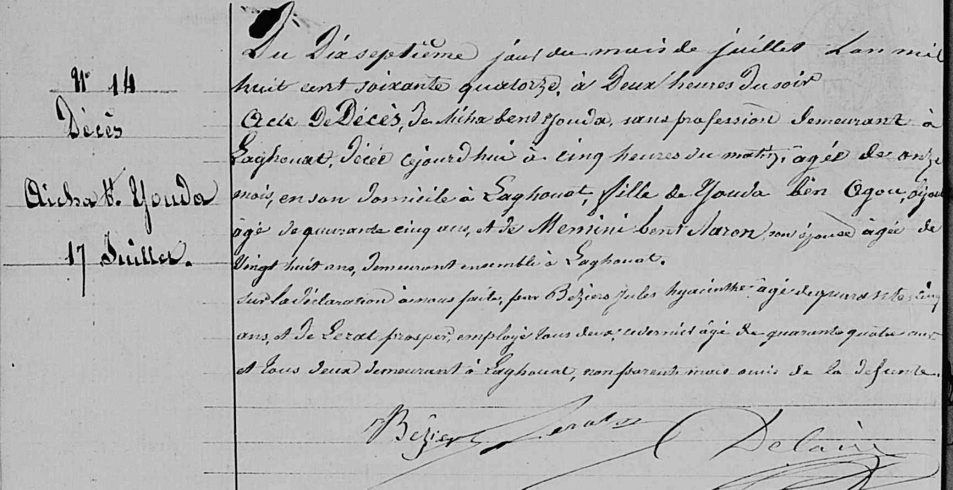 N° 14
Décès
Aicha bt. Youda
17 Juillet.
Du Dix septième jour du mois de juillet L'an mil
huit cent soixante quatorze, à Deux heures Du soir
Acte De Décès, de Aicha bent Youda, sans profession demeurant à
Laghouat, décéé cejourd'hui à cinq heures du matin, âgée de onze
mois, en son domicile à Laghouat, fille de Youda ben Ogou,
âgé de quarante cinq ans, et de Memini bent Aaron, son épouse âgée de
Vingt huit ans, demeurant ensemble à Laghouat.
Sur la déclaration à nous faite, par Béziers Jules hyacinthe âgé de quarante cinq
ans, et de Lerat prosper, employé tous deux, ce dernier âgé de quarante quatre ans
et tous deux demeurant à Laghouat, non parents mais amis de la défunte.
Béziers Lerat Delair